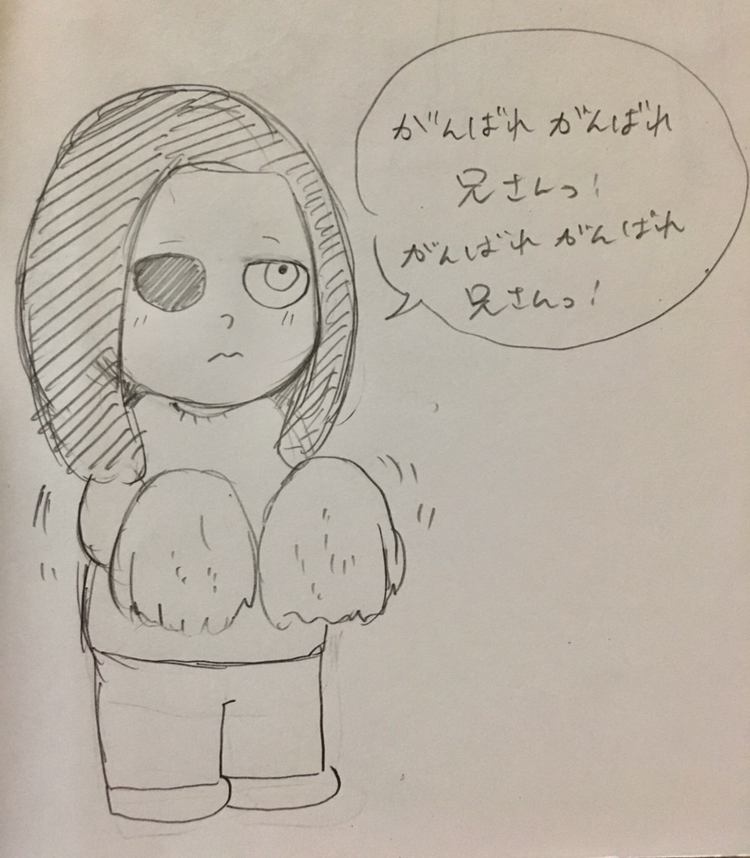 がんばれ がんばれ
兄さんっ!
がんばれ がんばれ
兄さんっ!